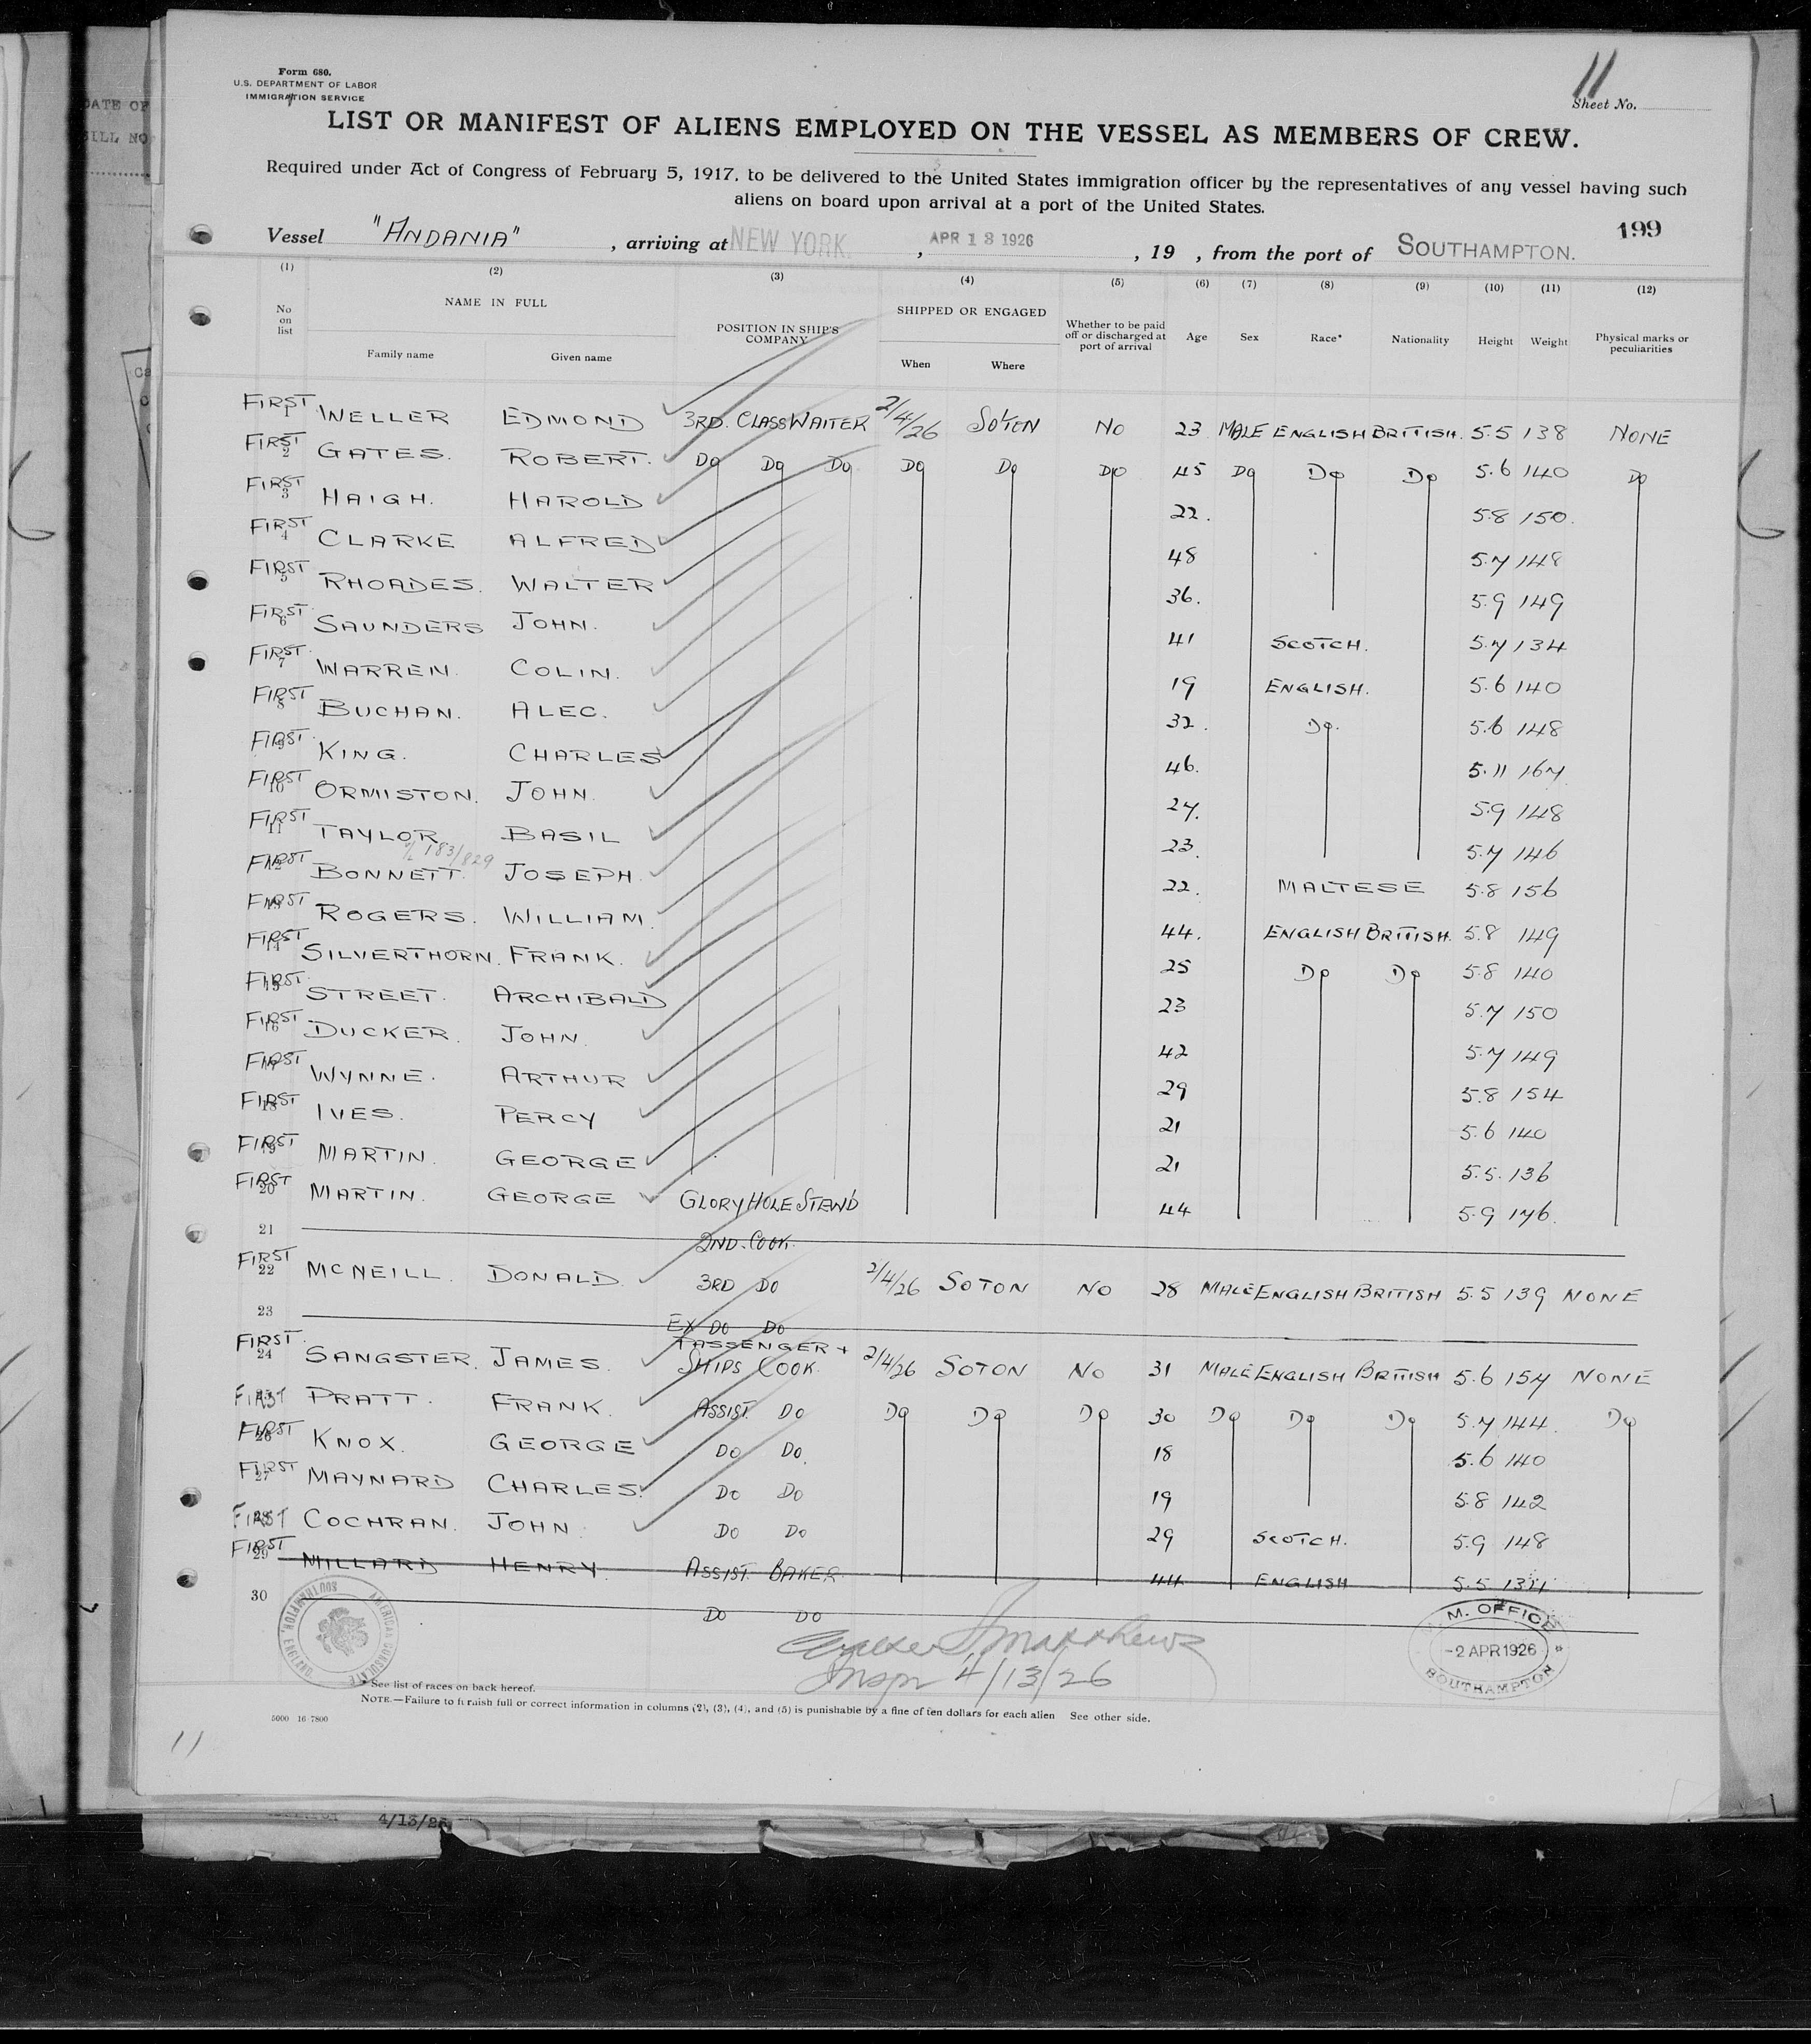 Form 680.
U.S. DEPARTMENT OF LABOR
IMMIGRATION SERVICE
11
Sheet No.
LIST OR MANIFEST OF ALIENS EMPLOYED ON THE VESSEL AS MEMBERS OF CREW.
Required under Act of Congress of February 5, 1917, to be delivered to the United States immigration officer by the representatives of any vessel having such
aliens on board upon arrival at a port of the United States.
199
Vessel "ANDANIA", arriving at NEW YORK, APR 13 1926, 19 , from the port of SOUTHAMPTON.
(1) (2) (3) (4) (5) (6) (7) (8) (9) (10) (11) (12)
No on list NAME IN FULL Family name Given name POSITION IN SHIP'S COMPANY SHIPPED OR ENGAGED When Where Whether to be paid off or discharged at port of arrival Age Sex Race* Nationality Height Weight Physical marks or peculiarities
FIRST 1 WELLER EDMOND 3RD. CLASS WAITER 2/4/26 SOTON NO 23 MALE ENGLISH BRITISH. 5.5 138 NONE
FIRST 2 GATES. ROBERT. DO DO DO DO DO DO 45 DO DO DO 5.6 140 DO
FIRST 3 HAIGH. HAROLD 22. 5.8 150.
FIRST 4 CLARKE ALFRED 48 5.7 148
FIRST 5 RHOADES. WALTER 36. 5.9 149
FIRST 6 SAUNDERS JOHN. 41 SCOTCH. 5.7 134
FIRST 7 WARREN. COLIN. 19 ENGLISH. 5.6 140
FIRST 8 BUCHAN. ALEC. 32. DO. 5.6 148
FIRST 9 KING. CHARLES 46. 5.11 167
FIRST 10 ORMISTON. JOHN. 27. 5.9 148
FIRST 11 TAYLOR BASIL 23. 5.7 146
183/829
FIRST 12 BONNETT. JOSEPH. 22. MALTESE 5.8 156
FIRST 13 ROGERS. WILLIAM. 44. ENGLISH BRITISH. 5.8 149
FIRST 14 SILVERTHORN. FRANK. 25 DO DO 5.8 140
FIRST 15 STREET. ARCHIBALD 23 5.7 150
FIRST 16 DUCKER. JOHN. 42 5.7 149
FIRST 17 WYNNE. ARTHUR 29 5.8 154
FIRST 18 IVES. PERCY 21 5.6 140
FIRST 19 MARTIN. GEORGE 21 5.5. 136
FIRST 20 MARTIN. GEORGE GLORY HOLE STEWD 44 5.9 176.
21 2ND. COOK.
FIRST 22 MCNEILL. DONALD. 3RD DO 2/4/26 SOTON NO 28 MALE ENGLISH BRITISH 5.5 139 NONE
23 EX DO DO
FIRST 24 SANGSTER. JAMES. PASSENGER + SHIPS COOK. 2/4/26 SOTON NO 31 MALE ENGLISH BRITISH 5.6 157 NONE
FIRST 25 PRATT. FRANK. ASSIST. DO DO DO DO 30 DO DO DO 5.7 144. DO
FIRST 26 KNOX. GEORGE DO DO. 18 5.6 140
FIRST 27 MAYNARD CHARLES. DO DO 19 5.8 142
FIRST 28 COCHRAN. JOHN DO DO 29 SCOTCH. 5.9 148
FIRST 29 MILLARD HENRY. ASSIST. BAKER. 44 ENGLISH 5.5
30 DO DO
AMERICAN CONSULATE SOUTHAMPTON, ENGLAND.
Matthews
Inspr 4/13/26
M. OFFICE
-2 APR 1926
SOUTHAMPTON
* See list of races on back hereof.
NOTE.—Failure to furnish full or correct information in columns (2), (3), (4), and (5) is punishable by a fine of ten dollars for each alien See other side.
5000 16-7800
11
4/13/26